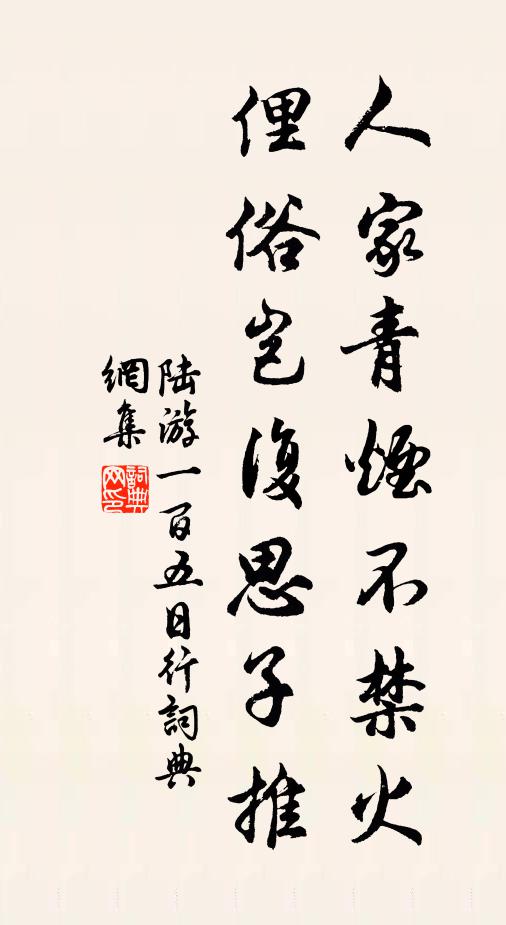 人家青煙不禁火
俚俗豈復思子推
陆游一百五日行詞典
網集
詞典網印